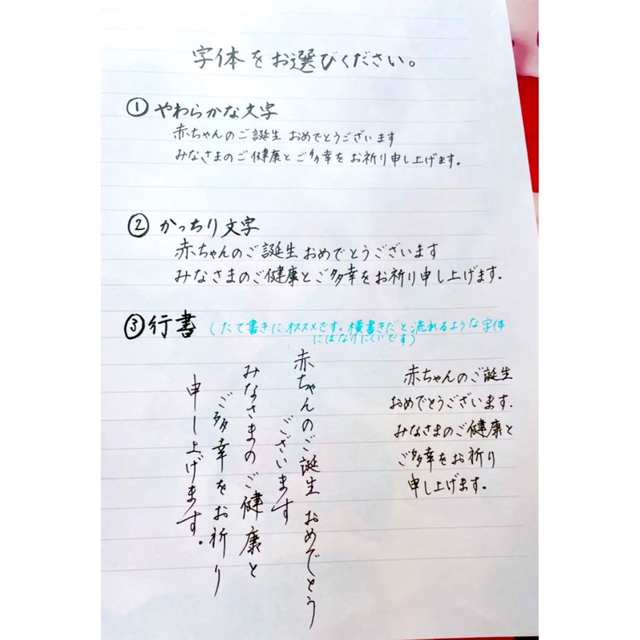 字体をお選びください。
①やわらかな文字
赤ちゃんのご誕生 おめでとうございます
みなさまのご健康とご多幸をお祈り申し上げます。
②かっちり文字
赤ちゃんのご誕生おめでとうございます
みなさまのご健康とご多幸をお祈り申し上げます。
③行書(たて書きにオススメです。横書きだと流れるような字体
にはなりにくいです)
赤ちゃんのご誕生 おめでとう
ございます
みなさまのご健康と
ご多幸をお祈り
申し上げます。
赤ちゃんのご誕生
おめでとうございます.
みなさまのご健康と
ご多幸をお祈り
申し上げます。